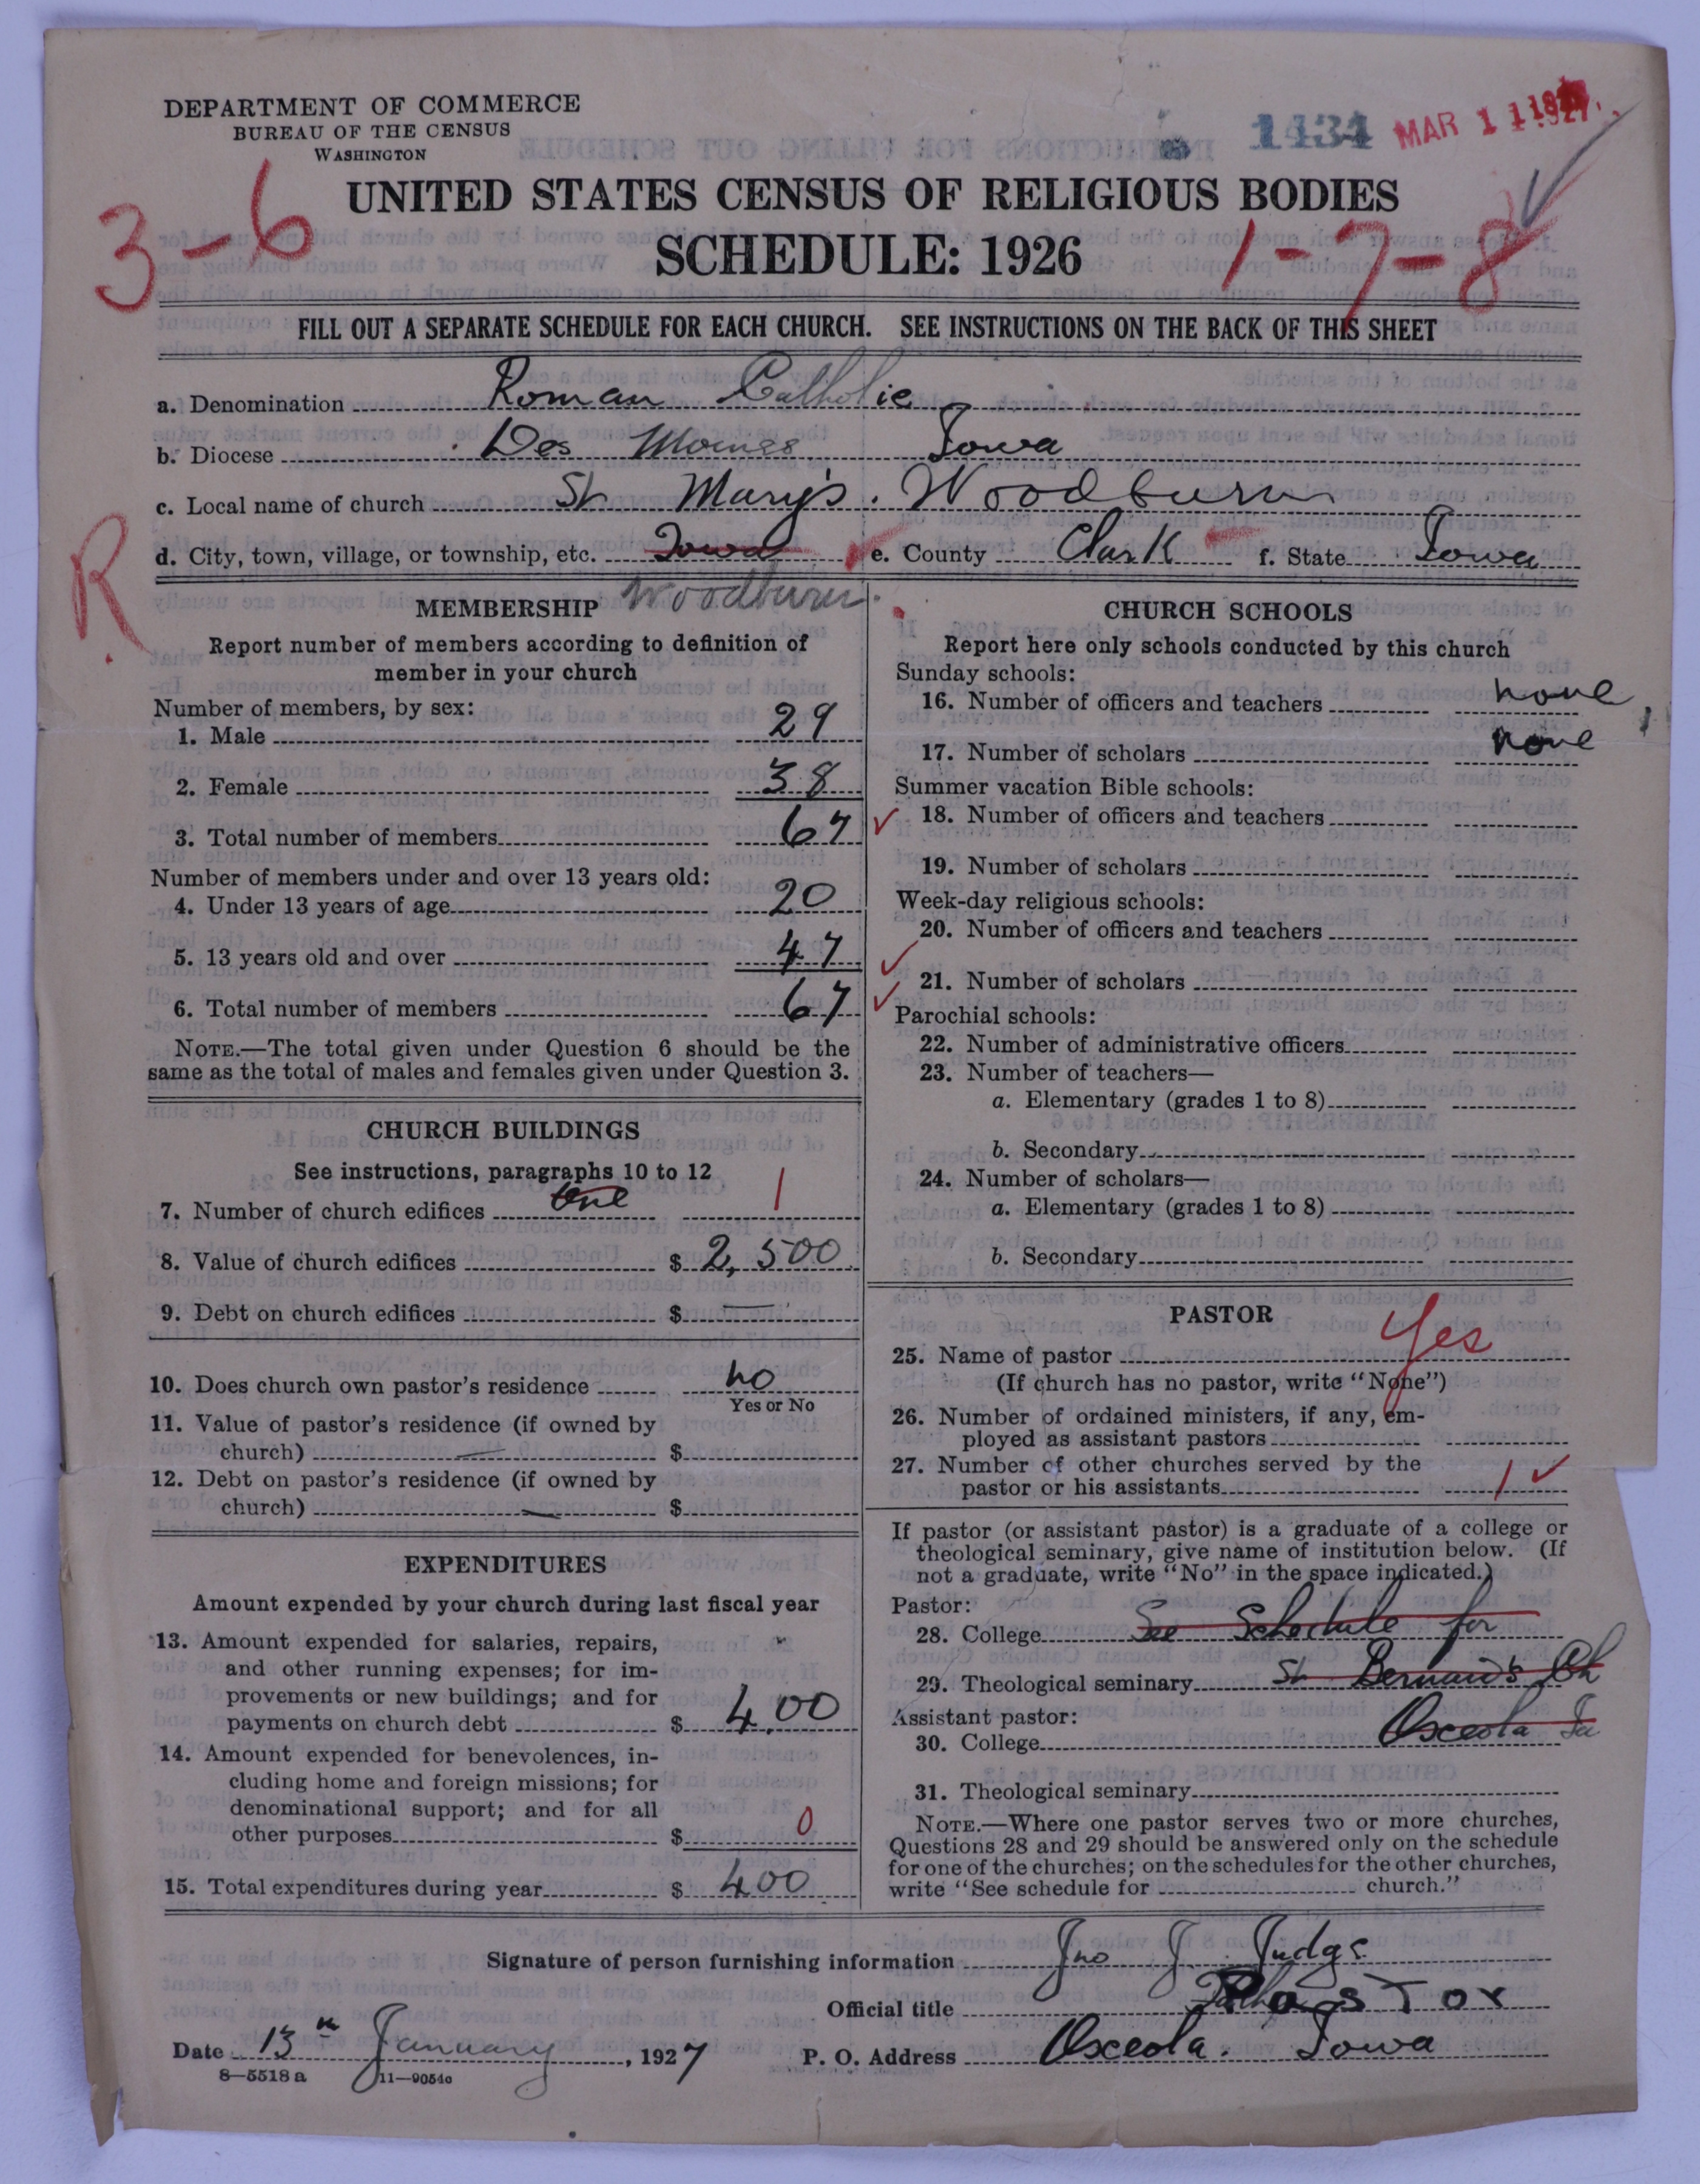 DEPARTMENT OF COMMERCE
BUREAU OF THE CENSUS
WASHINGTON
1434 MAR 11 1927
3-6
UNITED STATES CENSUS OF RELIGIOUS BODIES
SCHEDULE: 1926
1-7-8
FILL OUT A SEPARATE SCHEDULE FOR EACH CHURCH. SEE INSTRUCTIONS ON THE BACK OF THIS SHEET
a. Denomination Roman Catholic
b. Diocese Des Moines Iowa
c. Local name of church St Mary's. Woodburn
R
d. City, town, village, or township, etc. Iowa e. County Clark f. State Iowa
Woodburn.
MEMBERSHIP
Report number of members according to definition of
member in your church
Number of members, by sex:
1. Male 29
2. Female 38
3. Total number of members 67
Number of members under and over 13 years old:
4. Under 13 years of age 20
5. 13 years old and over 47
6. Total number of members 67
NOTE.—The total given under Question 6 should be the
same as the total of males and females given under Question 3.
CHURCH BUILDINGS
See instructions, paragraphs 10 to 12
7. Number of church edifices one 1
8. Value of church edifices $ 2,500
9. Debt on church edifices $ —
10. Does church own pastor's residence no
Yes or No
11. Value of pastor's residence (if owned by
church) — $
12. Debt on pastor's residence (if owned by
church) — $
EXPENDITURES
Amount expended by your church during last fiscal year
13. Amount expended for salaries, repairs,
and other running expenses; for im-
provements or new buildings; and for
payments on church debt $ 400
14. Amount expended for benevolences, in-
cluding home and foreign missions; for
denominational support; and for all
other purposes $ 0
15. Total expenditures during year $ 400
CHURCH SCHOOLS
Report here only schools conducted by this church
Sunday schools:
16. Number of officers and teachers none
17. Number of scholars none
Summer vacation Bible schools:
18. Number of officers and teachers
19. Number of scholars
Week-day religious schools:
20. Number of officers and teachers
21. Number of scholars
Parochial schools:
22. Number of administrative officers
23. Number of teachers—
a. Elementary (grades 1 to 8)
b. Secondary
24. Number of scholars—
a. Elementary (grades 1 to 8)
b. Secondary
PASTOR
25. Name of pastor Yes
(If church has no pastor, write "None")
26. Number of ordained ministers, if any, em-
ployed as assistant pastors
27. Number of other churches served by the
pastor or his assistants 1
If pastor (or assistant pastor) is a graduate of a college or
theological seminary, give name of institution below. (If
not a graduate, write "No" in the space indicated.)
Pastor:
28. College See Schedule for
29. Theological seminary St Bernard's Ch
Assistant pastor:
30. College Osceola Ia
31. Theological seminary
NOTE.—Where one pastor serves two or more churches,
Questions 28 and 29 should be answered only on the schedule
for one of the churches; on the schedules for the other churches,
write "See schedule for church."
Signature of person furnishing information Jno J. Judge
Official title Pastor
Date 13th January, 1927 P. O. Address Osceola. Iowa
8—5518a 11—9054c